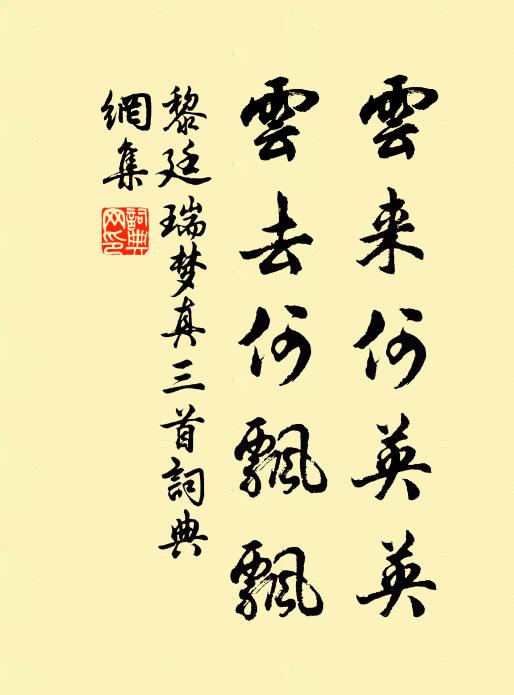 雲来何英英
雲去何飄飄
黎廷瑞梦真三首詞典
網集
詞典
网印